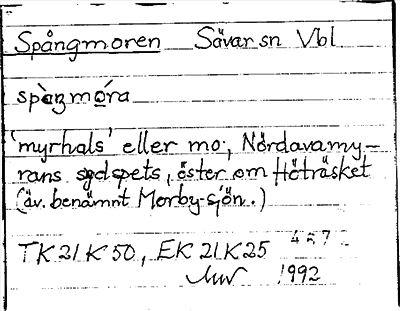 Spångmoren Sävar sn Vbl
spàŋmóra
'myrhals' eller mo, Nördavamy-
rans sydspets, öster om Höträsket
(äv. benämnt Morby-sjön.)
TK 21 K 50, EK 21 K 25 427
1992